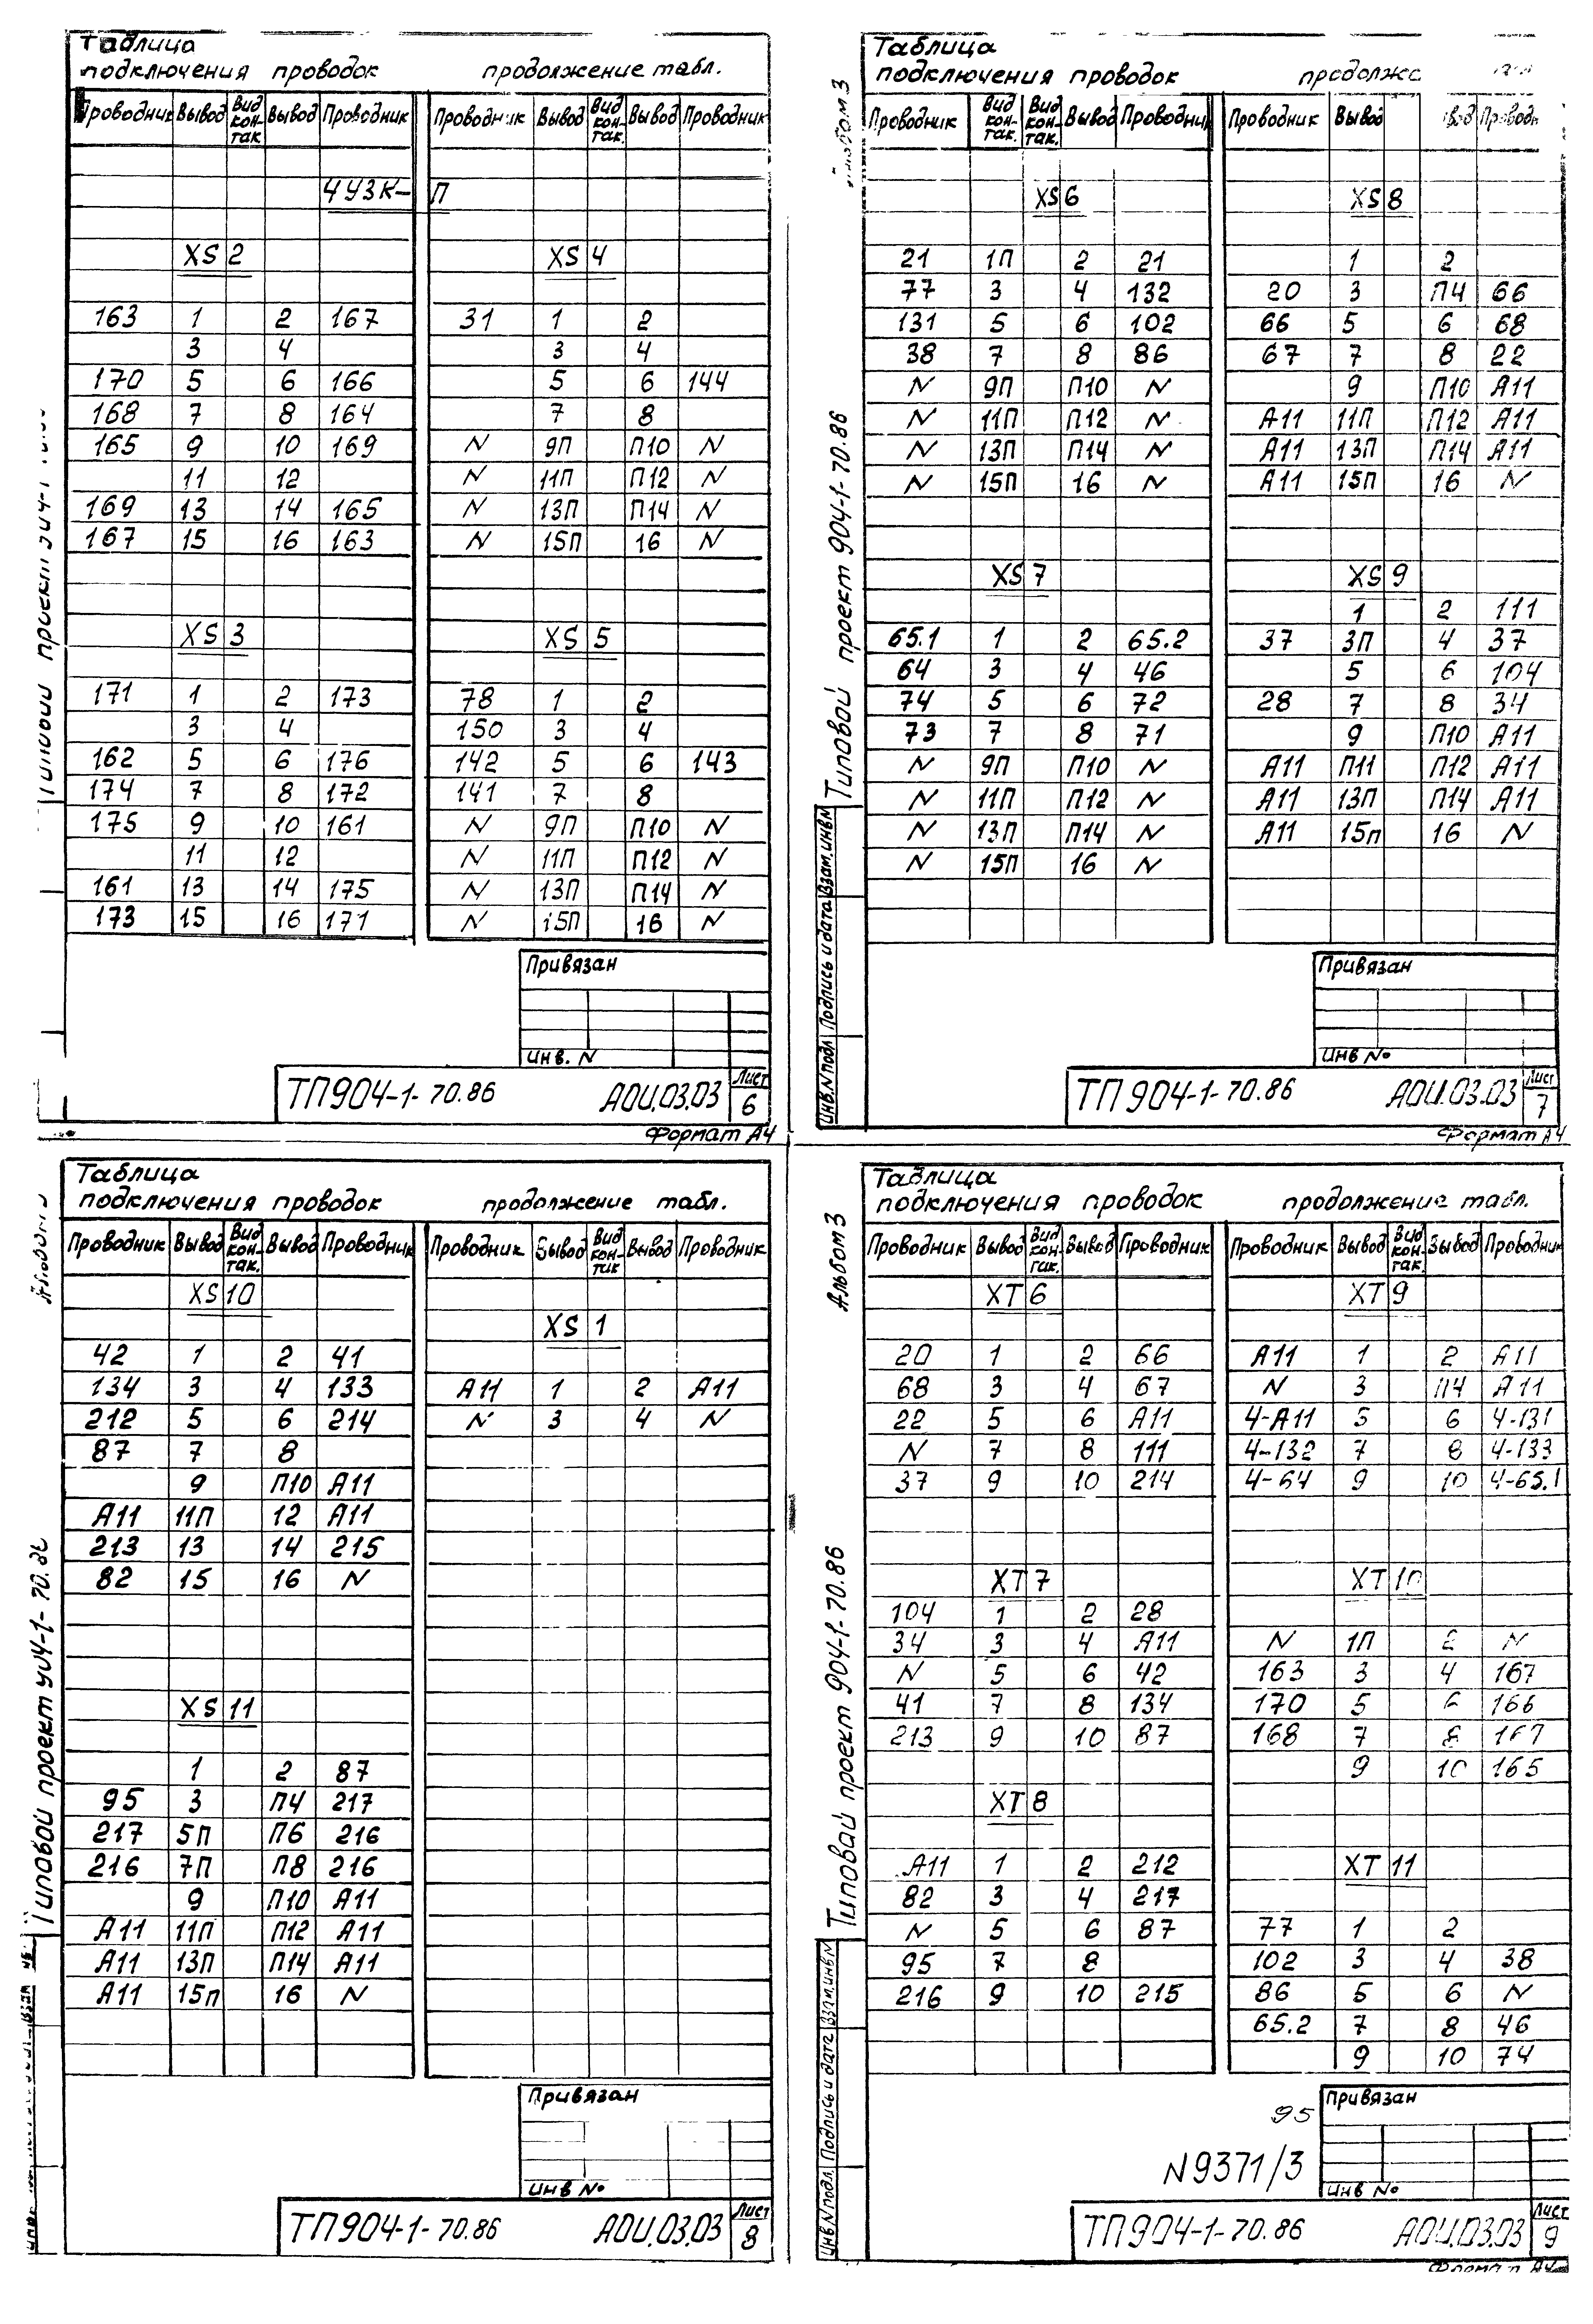 Таблица
подключения проводок продолжение табл.
Проводник Вывод Вид кон- так Вывод Проводник Проводник Вывод Вид кон- так. Вывод Проводник
4УЗК- П
XS 2 XS 4
163 1 2 167 31 1 2
3 4 3 4
170 5 6 166 5 6 144
168 7 8 164 7 8
165 9 10 169 N 9П П10 N
11 12 N 11П П12 N
169 13 14 165 N 13П П14 N
167 15 16 163 N 15П 16 N
XS 3 XS 5
171 1 2 173 78 1 2
3 4 150 3 4
162 5 6 176 142 5 6 143
174 7 8 172 141 7 8
175 9 10 161 N 9П П10 N
11 12 N 11П П12 N
161 13 14 175 N 13П П14 N
173 15 16 171 N 15П 16 N
Привязан
Инв. N
ТП904-1-70.86 АОИ.03.03 Лист 6
Формат А4
Таблица
подключения проводок
Проводник Вид кон- так. Вид кон- так. Вывод Проводник Проводник Вывод
XS 6 XS 8
21 1П 2 21 1 2
77 3 4 132 20 3 П4 66
131 5 6 102 66 5 6 68
38 7 8 86 67 7 8 22
N 9П П10 N 9 П10 А11
N 11П П12 N А11 11П П12 А11
N 13П П14 N А11 13П П14 А11
N 15П 16 N А11 15П 16 N
XS 7 XS 9
1 2 111
65.1 1 2 65.2 37 3П 4 37
64 3 4 46 5 6 104
74 5 6 72 28 7 8 34
73 7 8 71 9 П10 А11
N 9П П10 N А11 П11 П12 А11
N 11П П12 N А11 13П П14 А11
N 13П П14 N А11 15п 16 N
N 15П 16 N
Типовой проект 904-1-70.86
Инв.N подл Подпись и дата Взам.инвN
Привязан
Инв No
ТП904-1-70.86 АОИ.03.03 Лист 7
Формат А4
Таблица
подключения проводок продолжение табл.
Проводник Вывод Вид кон- так. Вывод Проводник Проводник Вывод Вид кон- так Вывод Проводник
XS 10
XS 1
42 1 2 41
134 3 4 133 А11 1 2 А11
212 5 6 214 N 3 4 N
87 7 8
9 П10 А11
А11 11П 12 А11
213 13 14 215
82 15 16 N
XS 11
1 2 87
95 3 П4 217
217 5П П6 216
216 7П П8 216
9 П10 А11
А11 11П П12 А11
А11 13П П14 А11
А11 15п 16 N
Привязан
Инв No
ТП904-1-70.86 АОИ.03.03 Лист 8
Альбом 3
Таблица
подключения проводок продолжение табл.
Проводник Вывод Вид кон- так. Вывод Проводник Проводник Вывод Вид кон- так. Вывод Проводник
XT 6 XT 9
20 1 2 66 А11 1 2 А11
68 3 4 67 N 3 П4 А11
22 5 6 А11 4-А11 5 6 4-131
N 7 8 111 4-132 7 8 4-133
37 9 10 214 4-64 9 10 4-65.1
XT 7 XT 10
104 1 2 28
34 3 4 А11 N 1П 2 N
N 5 6 42 163 3 4 167
41 7 8 134 170 5 6 166
213 9 10 87 168 7 8
9 10 165
XT 8
А11 1 2 212 XT 11
82 3 4 217
N 5 6 87 77 1 2
95 7 8 102 3 4 38
216 9 10 215 86 5 6 N
65.2 7 8 46
9 10 74
Типовай проект 904-1-70.86
Инв.N подл. Подпись и дата Взам.инвN
95
N9371/3
Привязан
Инв No
ТП904-1-70.86 АОИ.03.03 Лист 9